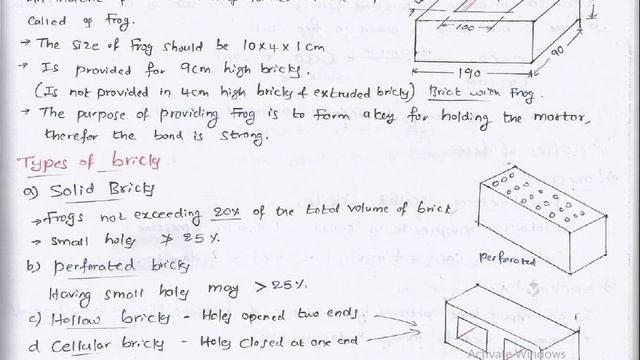 Called of Frog.
→ The size of Frog should be 10x4x1cm
→ Is provided for 9cm high bricks.
(Is not provided in 4cm high bricks & extruded bricks) Brick with Frog.
→ The purpose of providing Frog is to form a key for holding the mortor,
therefor the bond is strong.
100
190
90
Types of bricks
a) Solid Bricks
→ Frogs not exceeding 20% of the total volume of brick
→ small holes ≯ 25%
b) perforated bricks
Having small holes may > 25%
perforated
c) Hollow bricks - Holes opened two ends.
d Cellular bricks - Holes closed at one end
Activate Windows